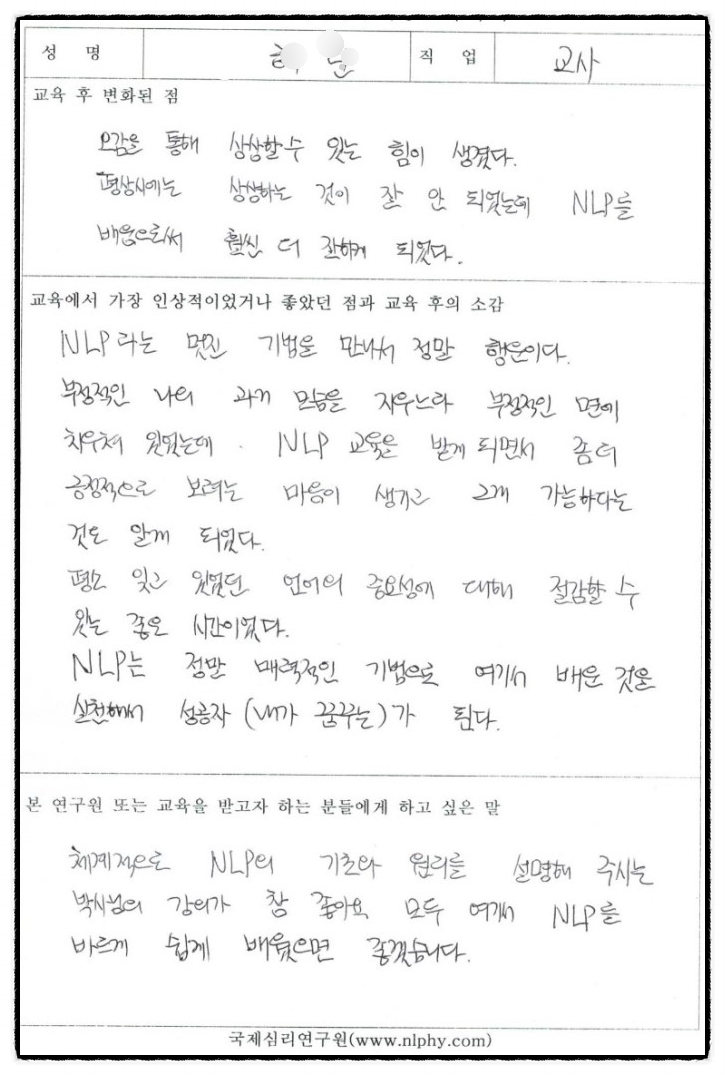 성 명 직 업 교사
교육 후 변화된 점
오감을 통해 상상할 수 있는 힘이 생겼다.
평상시에는 상상하는 것이 잘 안 되었는데 NLP를
배움으로써 훨씬 더 잘하게 되었다.
교육에서 가장 인상적이었거나 좋았던 점과 교육 후의 소감
NLP라는 멋진 기법을 만나서 정말 행운이다.
부정적인 나의 과거 모습을 지우느라 부정적인 면에
치우쳐 있었는데. NLP 교육을 받게 되면서 좀더
긍정적으로 보려는 마음이 생기고 그게 가능하다는
것도 알게 되었다.
평소 잊고 있었던 언어의 중요성에 대해 절감할 수
있는 좋은 시간이었다.
NLP는 정말 매력적인 기법으로 여기서 배운 것을
실천해서 성공자 (내가 꿈꾸는)가 된다.
본 연구원 또는 교육을 받고자 하는 분들에게 하고 싶은 말
체계적으로 NLP의 기초와 원리를 설명해 주시는
박사님의 강의가 참 좋아요 모두 여기서 NLP를
바르게 쉽게 배웠으면 좋겠습니다.
국제심리연구원(www.nlphy.com)